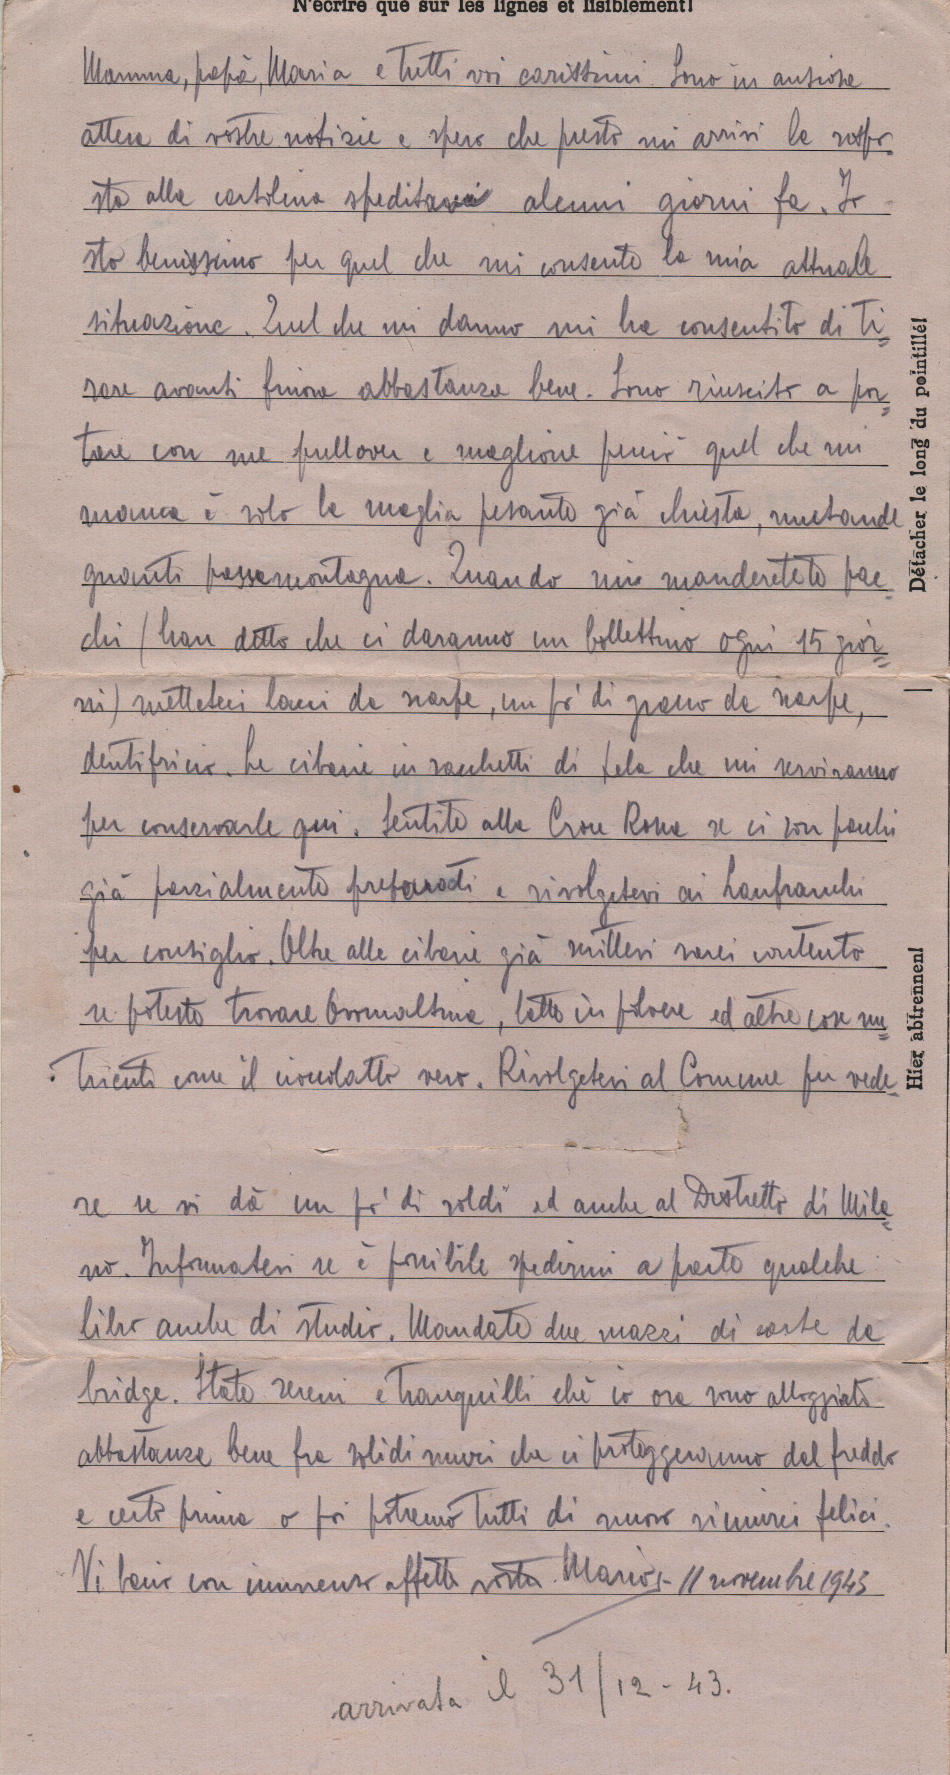 N'écrire que sur les lignes et lisiblement!
Mamma, papà, Maria e tutti voi carissimi. Sono in ansiosa
attesa di vostre notizie e spero che presto mi arrivi la rispo-
sta alla cartolina speditavi alcuni giorni fa. Io
sto benissimo per quel che mi consente la mia attuale
situazione. Quel che mi danno mi ha consentito di ti=
rare avanti finora abbastanza bene. Sono riuscito a por=
tare con me pullover e maglione perciò quel che mi
manca è solo la maglia pesante già chiesta, mutande
guanti passamontagna. Quando mi manderete pac=
chi (han detto che ci daranno un bollettino ogni 15 gior=
ni) metteteci lacci da scarpe, un pò di grasso da scarpe,
dentifricio. Le cibarie in sacchetti di tela che mi serviranno
per conservarle qui. Sentite alla Croce Rossa se ci son pacchi
già parzialmente preparati e rivolgetevi ai Lanfranchi
per consiglio. Oltre alle cibarie già scrittevi sarei contento
se poteste trovare Ovomaltina, latte in polvere ed altre cose nu=
trienti come il cioccolatto vero. Rivolgetevi al Comune per vede=
re se vi dà un pò di soldi ed anche al Distretto di Mila=
no. Informatevi se è possibile spedirmi a parte qualche
libro anche di studio. Mandate due mazzi di carte da
bridge. State sereni e tranquilli chè io ora sono alloggiato
abbastanza bene fra solidi muri che ci proteggeranno dal freddo
e certo prima o poi potremo tutti di nuovo riunirci felici.
Vi bacio con immenso affetto vostro Mario - 11 novembre 1943
arrivata il 31/12-43.
Détacher le long du pointillé!
Hier abtrennen!